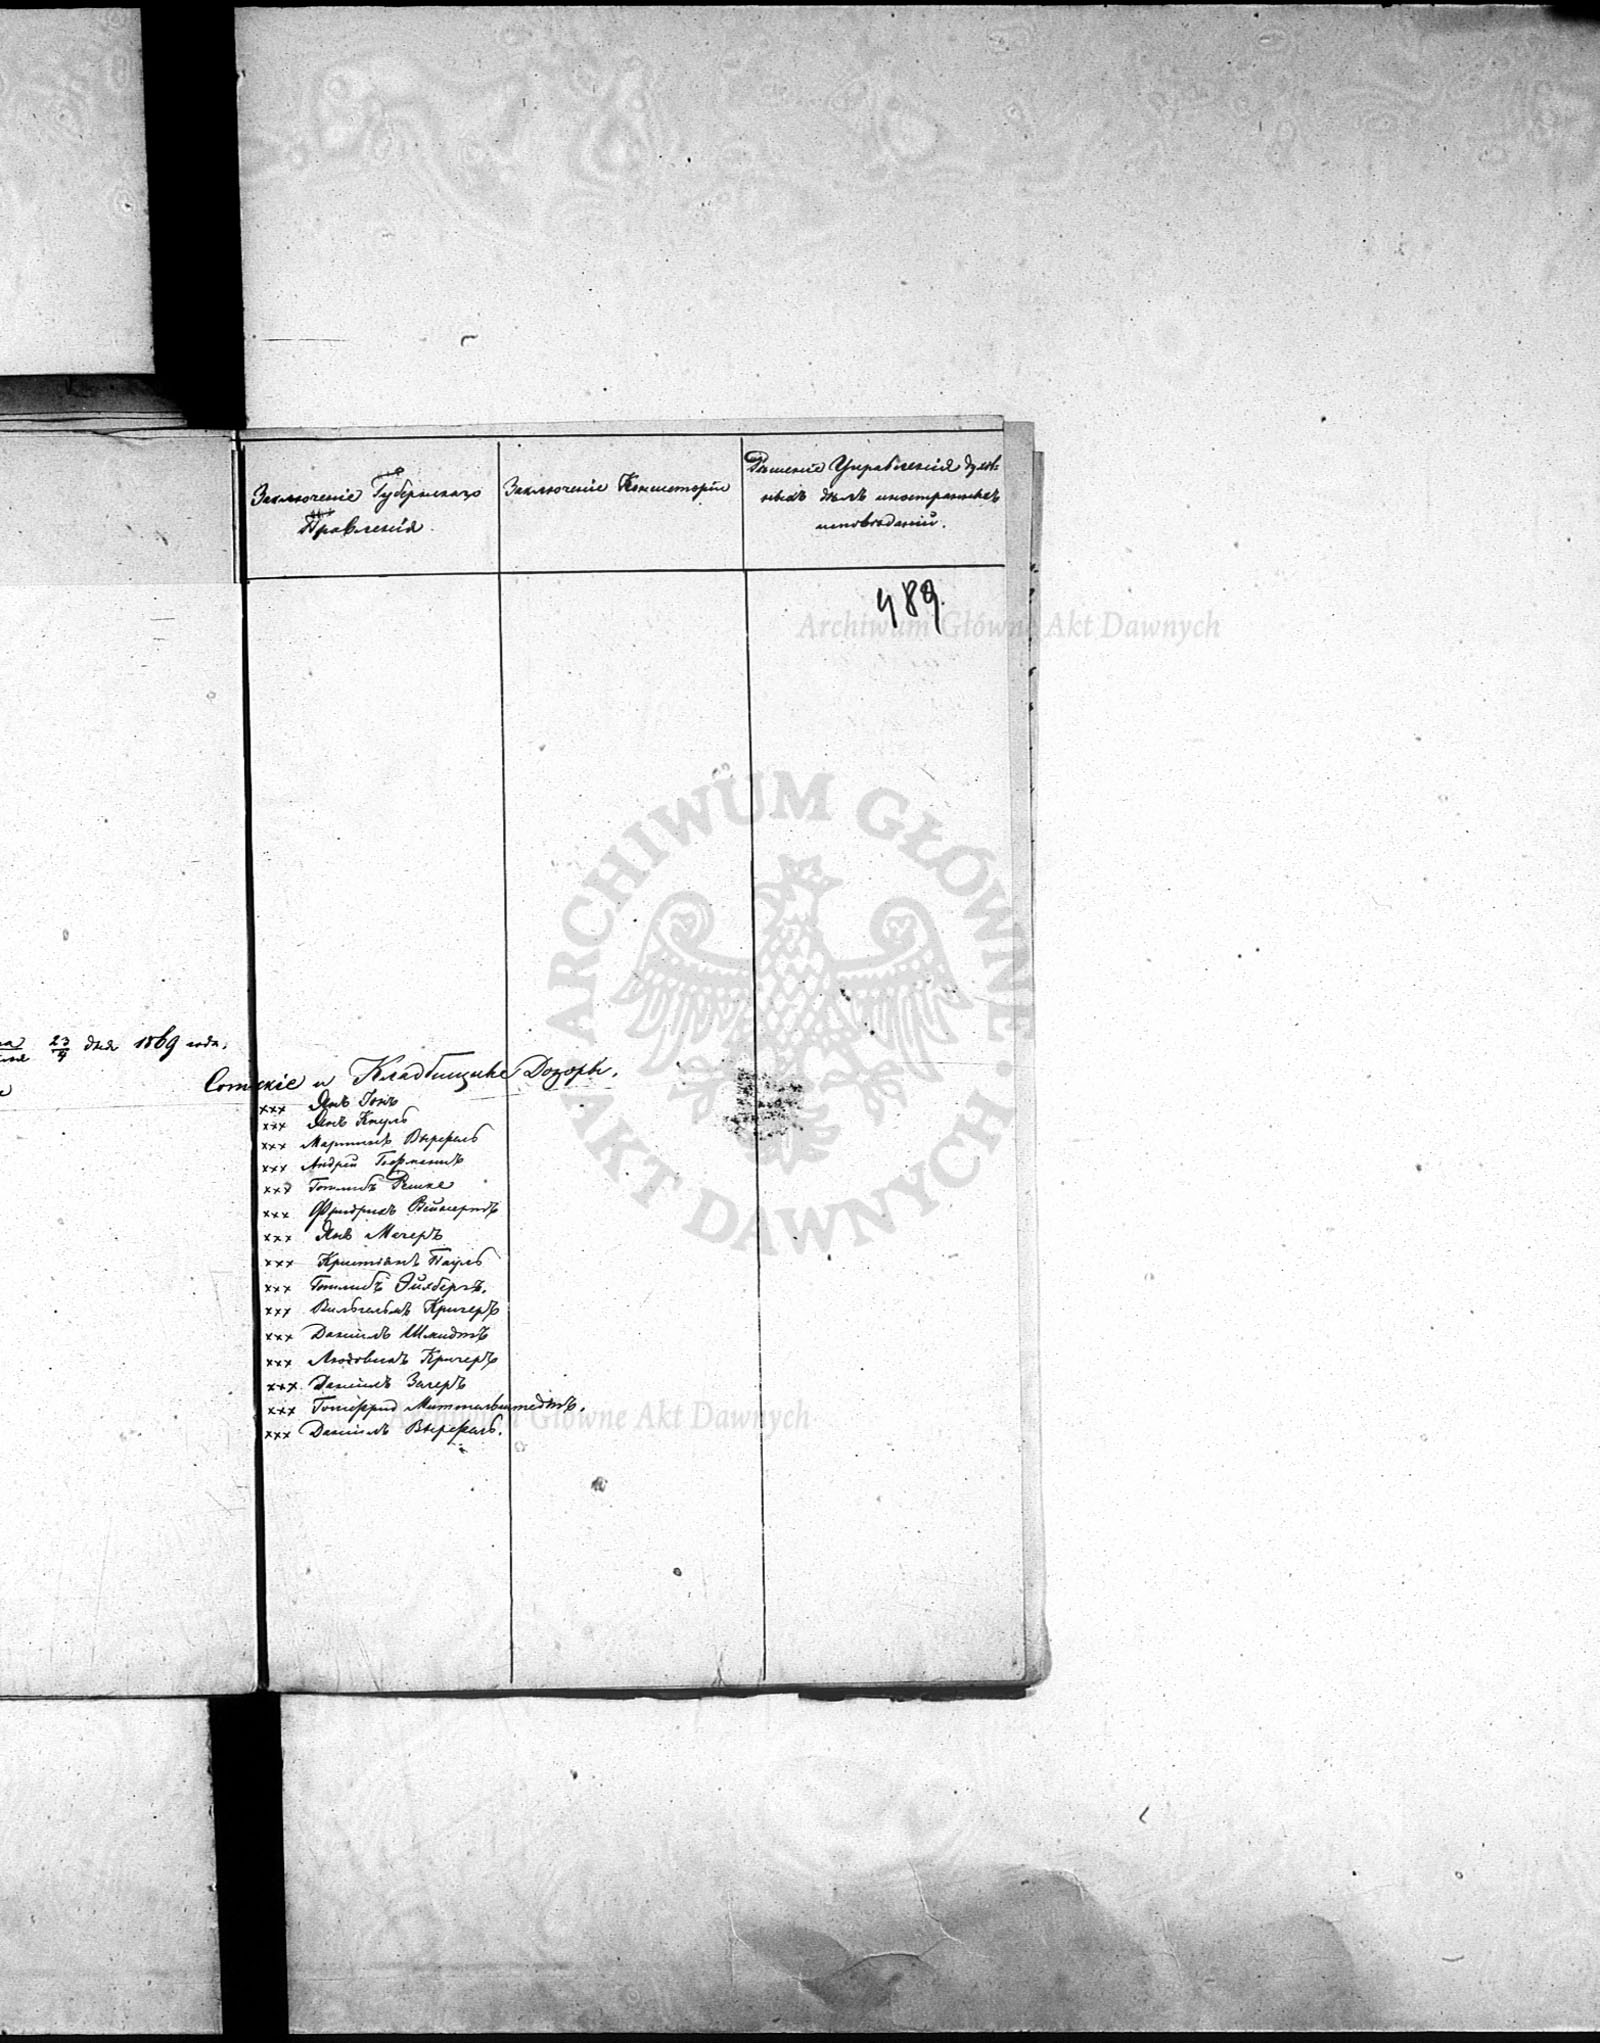 Заключеніе Губернскаго
Правленія.
Заключеніе Консисторіи
Рѣшеніе Управленія духов-
ныхъ дѣлъ иностранныхъ
исповѣданій.
489.
Archiwum Główne Akt Dawnych
ARCHIWUM GŁÓWNE AKT DAWNYCH
23/4 дня 1869 года.
Сотскіе и Кладбищные Дозоры.
xxx Янъ Гонъ
xxx Янъ Кнуль
xxx Мартинъ Вырфель
xxx Андрей Гофманъ
xxx Готлибъ Решке
xxx Фридрихъ
xxx Янъ Мачеръ
xxx Христіанъ Пауль
xxx Готлибъ Эйхбергъ.
xxx Вильгельмъ Кригеръ
xxx Даніилъ Шмидтъ
xxx Людовикъ Кригеръ
xxx Даніилъ Загеръ
xxx Готфридъ Миттельштедтъ.
xxx Даніилъ Вырфель.
Archiwum Główne Akt Dawnych